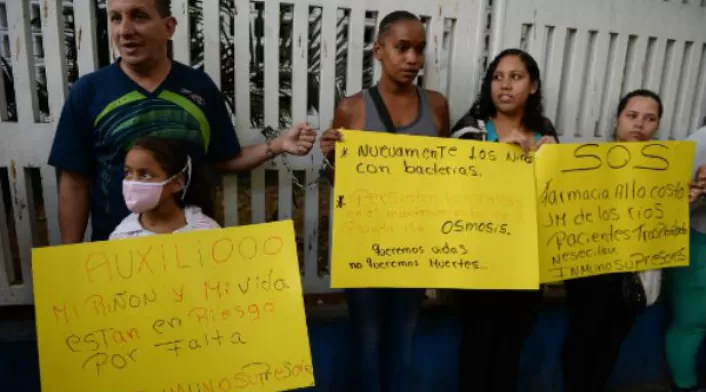 AUXILIOOO
Mi RiÑON y Mi Vida
estan en Riesgo
Por Falta
INMUNOSUPRESORES
* Nuevamente los Niños
con bacterias.
* Persisten las fallas
en el
Osmosis.
queremos vidas
no queremos Muertes...
SOS
farmacia Alto costo
JM de los rios
Pacientes
Nesecitan
INMUNOSUPRESORES